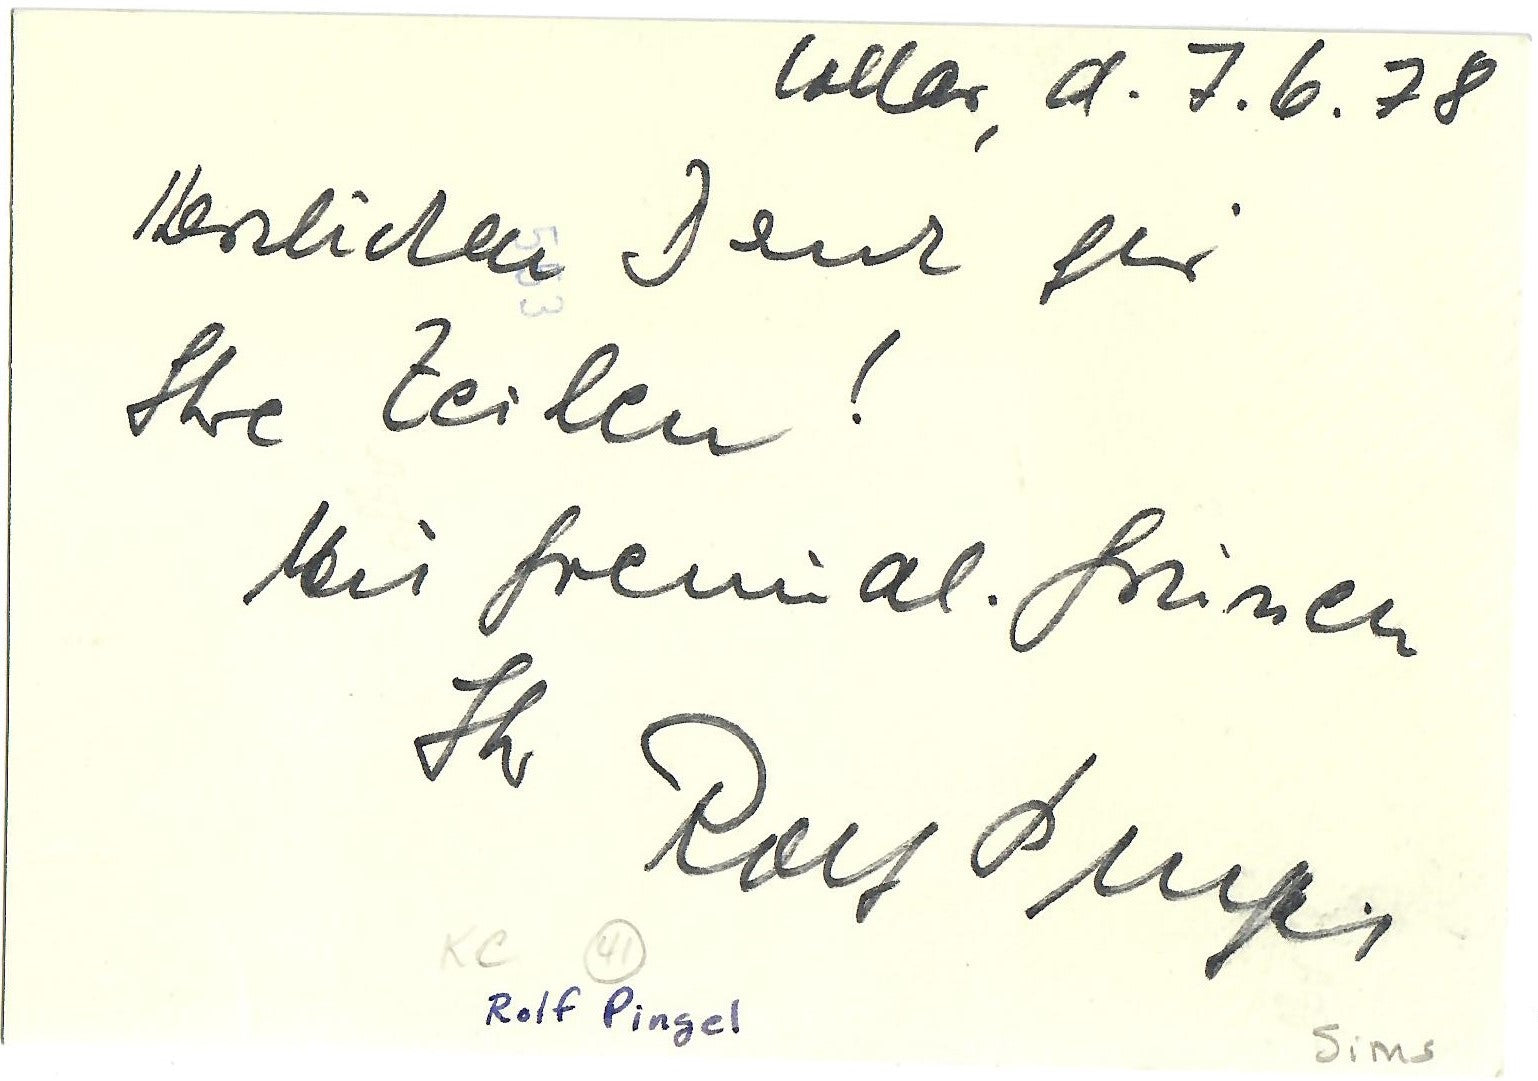 Lollar, d. 7.6.78
Herzlichen Dank für
Ihre Zeilen!
Mit freundl. Grüssen
Ihr
Rolf Pingel
KC 41
Rolf Pingel
Sims